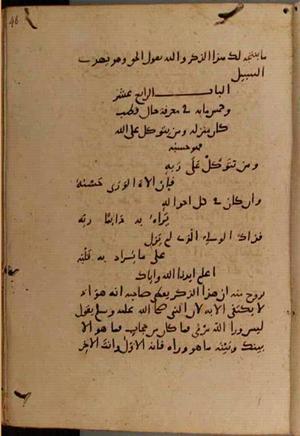 ما ينتجه لك هذا الذكر والله يقول الحق وهو يهدي
السبيل
الباب الرابع عشر
وخمس مايه في معرفة حال قطب
كان منزله ومن يتوكل على الله
فهو حسبه
ومن يتوكل على ربه
فإن الاه الورى حسبه
وإن كان في كل احواله
يراه به دائما ربه
فذاك الولي الذي لم يزل
على ما يراد به قلبه
اعلم ايدنا الله واياك
بروح منه ان هذا الذكر يعطي صاحبه انه هو اه
لا يكتفى الا به لان النبي صلى الله عليه وسلم يقول
ليس ورا الله مرمى فما كل من حجاب فما هو الا
بينك وبينه ما هو وراه فانه الاول وانت الاخر